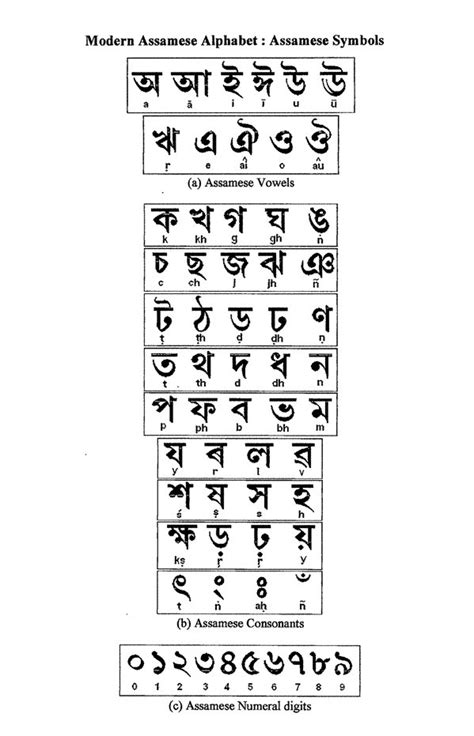 Modern Assamese Alphabet : Assamese Symbols
অ আ ই ঈ উ ঊ
a ā i ī u ü
ঋ এ ঐ ও ঔ
ṛ e aî o aû
(a) Assamese Vowels
ক খ গ ঘ ঙ
k kh g gh ṅ
চ ছ জ ঝ ঞ
c ch j jh ñ
ট ঠ ড ঢ ণ
ṭ ṭh ḍ ḍh ṇ
ত থ দ ধ ন
t th d dh n
প ফ ব ভ ম
p ph b bh m
য ৰ ল ৱ
y r l v
শ ষ স হ
ś ṣ s h
ক্ষ ড় ঢ় য়
kṣ ṛ ṛ y
ৎ ং ঃ ঁ
t ṅ aḥ ñ
(b) Assamese Consonants
০ ১ ২ ৩ ৪ ৫ ৬ ৭ ৮ ৯
0 1 2 3 4 5 6 7 8 9
(c) Assamese Numeral digits